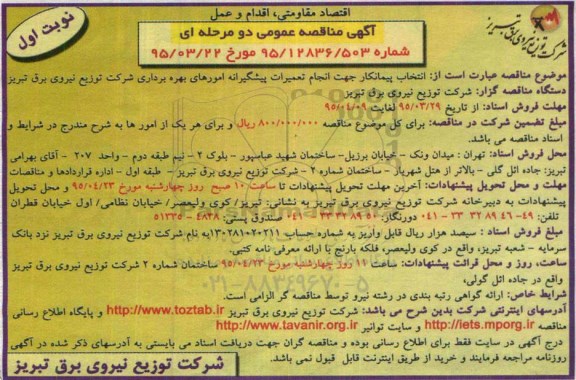 اقتصاد مقاومتی، اقدام و عمل
نوبت اول
آگهی مناقصه عمومی دو مرحله ای
شماره ۹۵/۱۲۸۳۶/۵۰۳ مورخ ۹۵/۰۳/۲۲
شرکت توزیع نیروی برق تبریز
موضوع مناقصه عبارت است از: انتخاب پیمانکار جهت انجام تعمیرات پیشگیرانه امورهای بهره برداری شرکت توزیع نیروی برق تبریز
دستگاه مناقصه گزار: شرکت توزیع نیروی برق تبریز
مهلت فروش اسناد: از تاریخ ۹۵/۰۳/۲۹ لغایت ۹۵/۰۴/۰۹
مبلغ تضمین شرکت در مناقصه: برای کل موضوع مناقصه ۸۰۰/۰۰۰/۰۰۰ ریال و برای هر یک از امور ها به شرح مندرج در شرایط و
اسناد مناقصه می باشد.
محل فروش اسناد: تهران : میدان ونک - خیابان برزیل- ساختمان شهید عباسپور - بلوک ۲ - نیم طبقه دوم - واحد ۲۰۷ - آقای بهرامی
تبریز: جاده ائل گلی - بالاتر از هتل شهریار - ساختمان شماره ۲ - شرکت توزیع نیروی برق تبریز - طبقه اول - اداره قراردادها و مناقصات
مهلت و محل تحویل پیشنهادات: آخرین مهلت تحویل پیشنهادات تا ساعت ۱۰ صبح روز چهارشنبه مورخ ۹۵/۰۴/۲۳ و محل تحویل
پیشنهادات به دبیرخانه شرکت توزیع نیروی برق تبریز به نشانی: تبریز/ کوی ولیعصر/ خیابان نظامی/ اول خیابان قطران
تلفن: ۴۹-۴۶ ۸۹ ۳۲ ۳۳ - ۰۴۱ دورنگار: ۵۰ ۸۹ ۳۲ ۳۳ - ۰۴۱ صندوق پستی: ۴۸۳۸ - ۵۱۳۳۵
مبلغ فروش اسناد : سیصد هزار ریال قابل واریز به شماره حساب ۱۳۰۲۸۱۰۲۰۲۱۱ به نام شرکت توزیع نیروی برق تبریز نزد بانک
سرمایه - شعبه تبریز، واقع در کوی ولیعصر، فلکه بارنج با ارائه معرفی نامه کتبی.
ساعت، روز و محل قرائت پیشنهادات: ساعت ۱۱ روز چهارشنبه مورخ ۹۵/۰۴/۲۳ ساختمان شماره ۲ شرکت توزیع نیروی برق تبریز
واقع در جاده ائل گولی،
شرایط خاص: ارائه گواهی رتبه بندی در رشته نیرو توسط مناقصه گر الزامی است.
آدرسهای اینترنتی شرکت بدین شرح می باشد: شرکت توزیع نیروی برق تبریز http://www.toztab.ir و پایگاه اطلاع رسانی
مناقصه http://iets.mporg.ir و سایت توانیر http://www.tavanir.org.ir
درج آگهی در سایت فقط برای اطلاع رسانی بوده و مناقصه گران جهت دریافت اسناد می بایستی به آدرسهای ذکر شده در آگهی
روزنامه مراجعه فرمایند و خرید از طریق اینترنت قابل قبول نمی باشد.
شرکت توزیع نیروی برق تبریز
۰۲۱-۸۸۳۴۹۶۷۰-۵